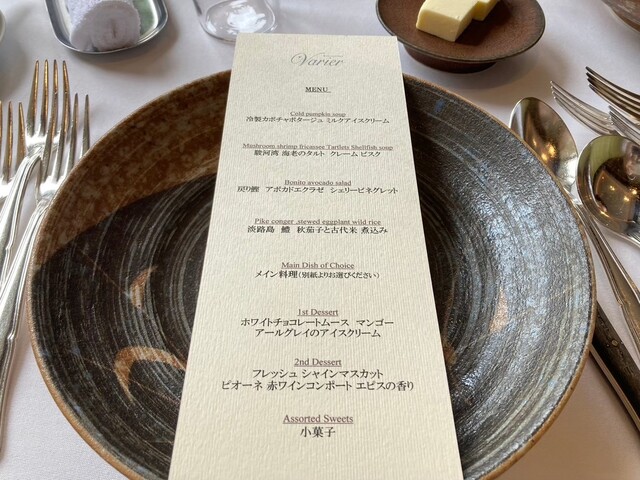 Varier
MENU
Cold pumpkin soup
冷製カボチャポタージュ ミルクアイスクリーム
Mushroom shrimp fricassee Tartlets Shellfish soup
駿河湾 海老のタルト クレーム ビスク
Bonito avocado salad
戻り鰹 アボカドエクラゼ シェリービネグレット
Pike conger ,stewed eggplant wild rice
淡路島 鱧 秋茄子と古代米 煮込み
Main Dish of Choice
メイン料理(別紙よりお選びください)
1st Dessert
ホワイトチョコレートムース マンゴー
アールグレイのアイスクリーム
2nd Dessert
フレッシュ シャインマスカット
ピオーネ 赤ワインコンポート エピスの香り
Assorted Sweets
小菓子